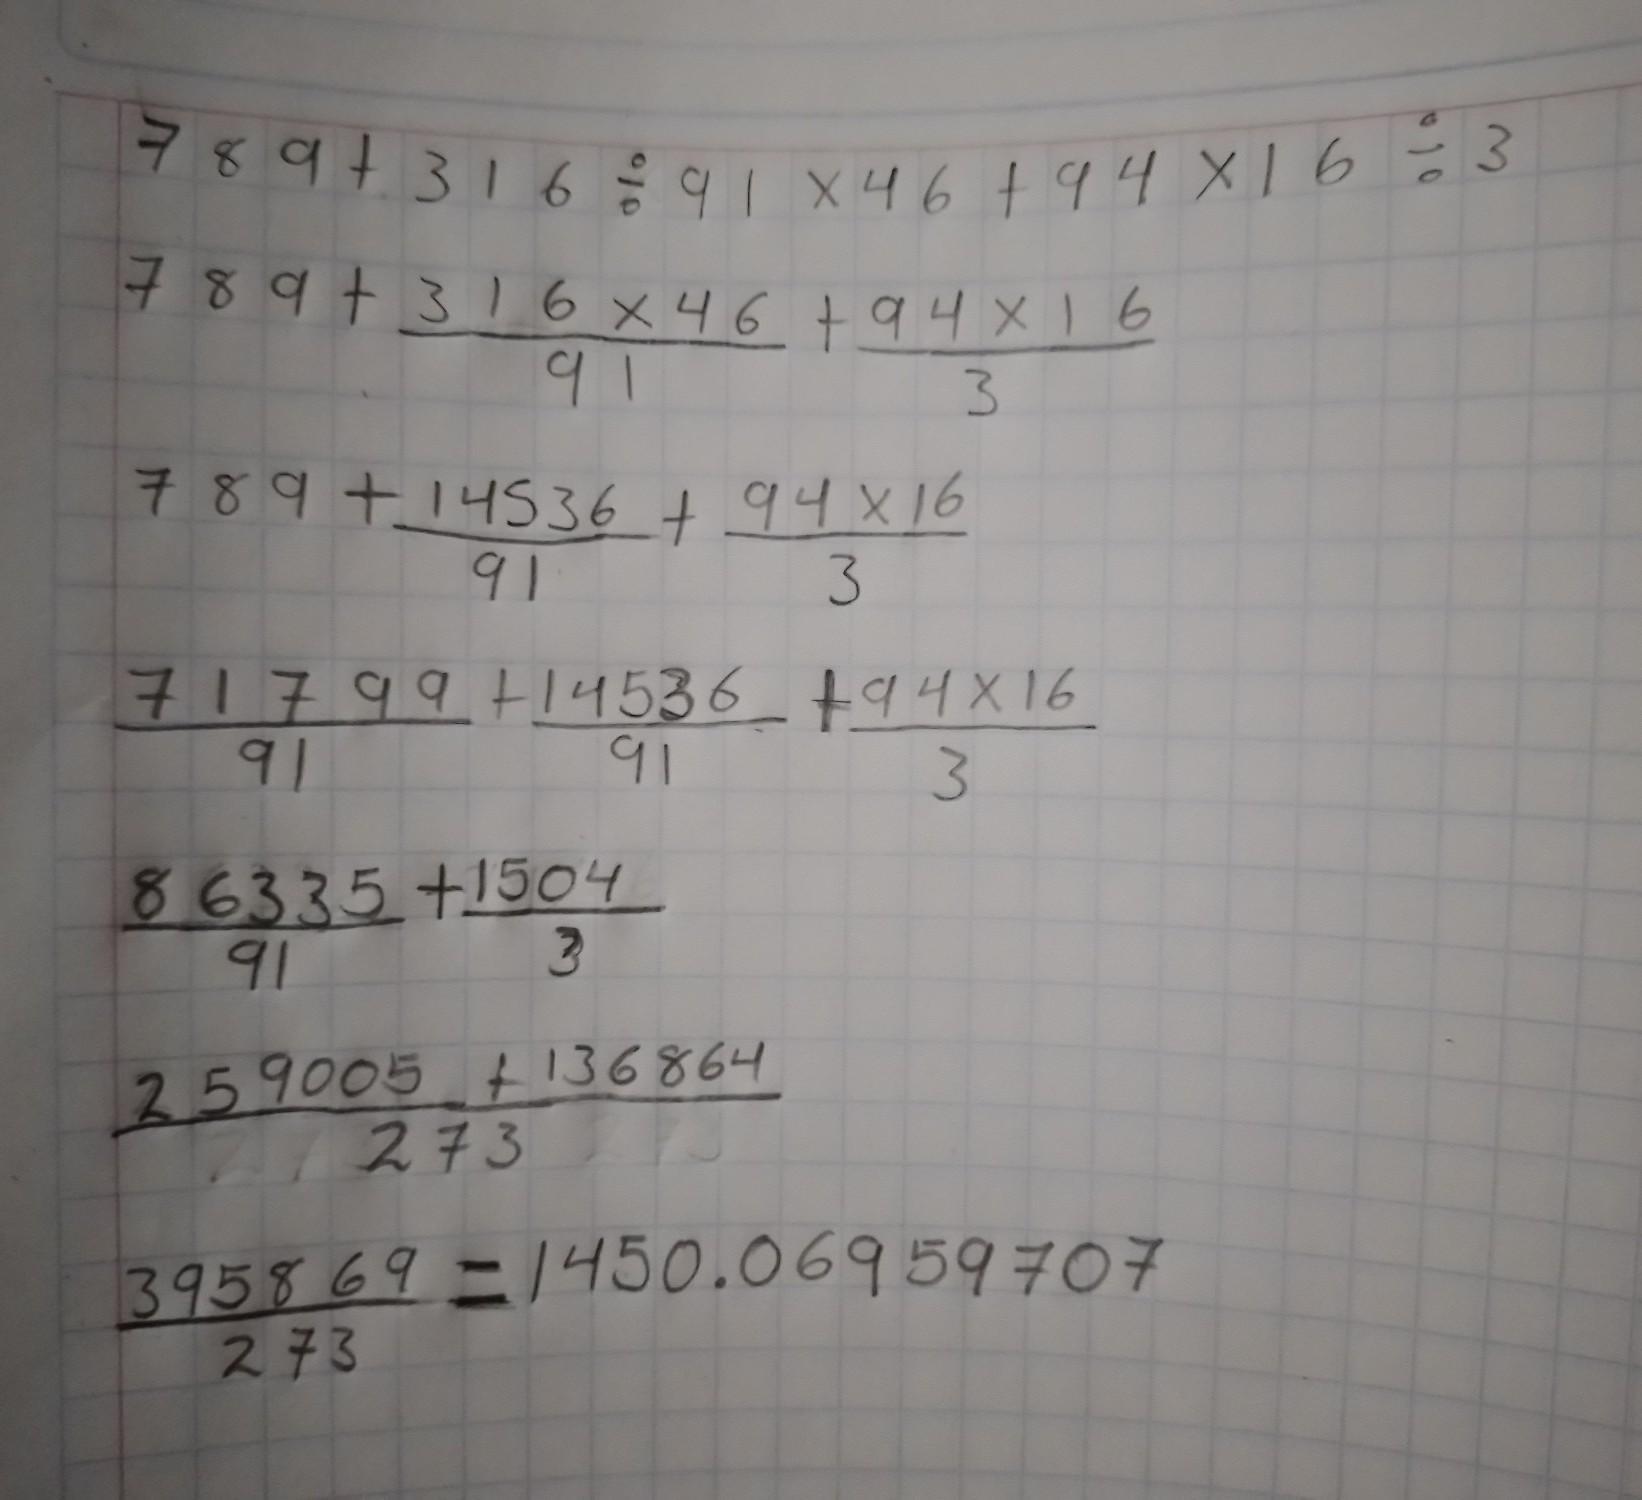 789+316÷91×46+94×16÷3
789+316×46/91+94×16/3
789+14536/91+94×16/3
71799/91+14536/91+94×16/3
86335/91+1504/3
259005+136864/273
395869/273=1450.06959707